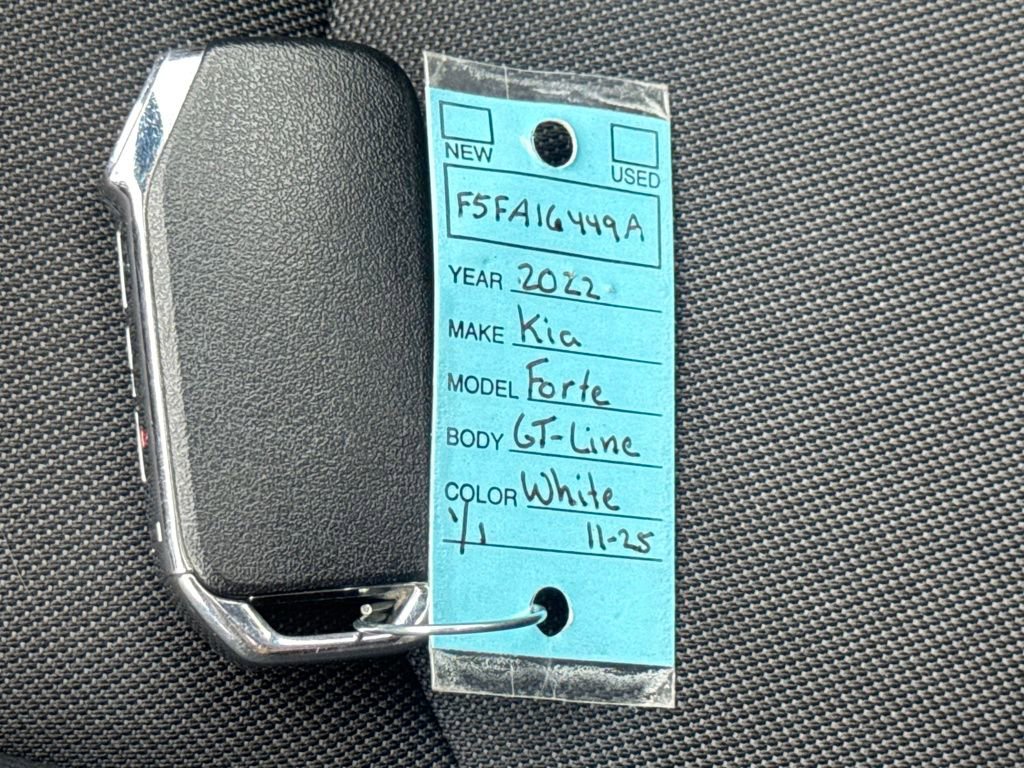 NEW USED
F5FA16449A
YEAR 2022
MAKE Kia
MODEL Forte
BODY GT-Line
COLOR White
1/1 11-25